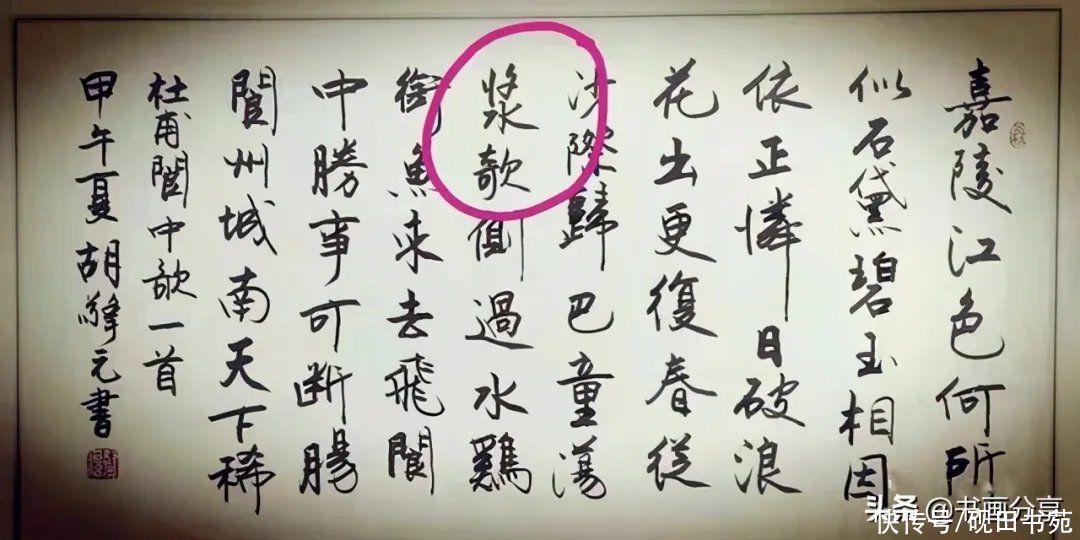 嘉陵江色何所
似石黛碧玉相因
依正憐日破浪
花出更復春從
沙際歸巴童蕩
漿欹側過水鷄
銜魚來去飛閬
中勝事可断腸
閬州城南天下稀
杜甫閬中歌一首
甲午夏胡元書
头条@书画分享
快传号/砚田书苑